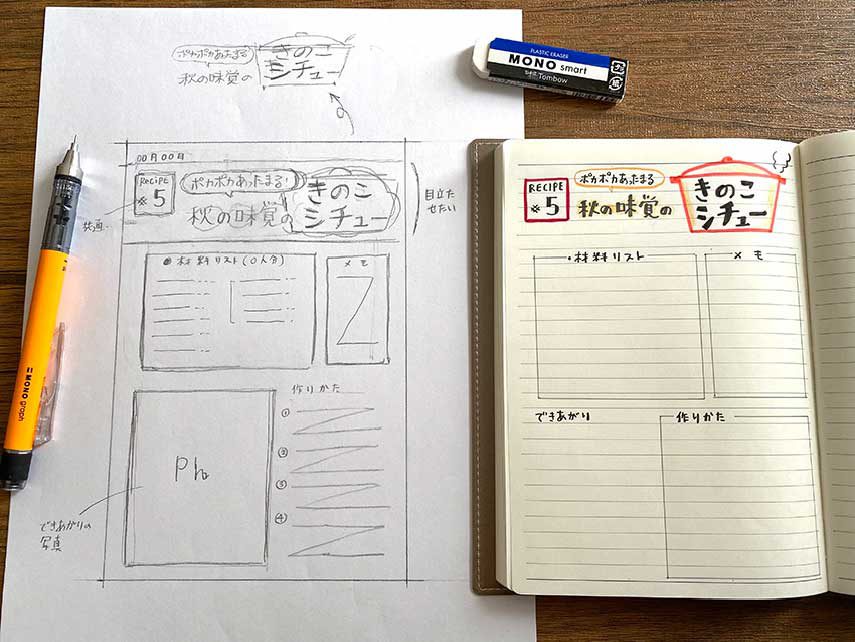 ポカポカあったまる
秋の味覚の
きのこ
シチュー
00月00日
RECIPE
※5
ポカポカあったまる!
秋の味覚の
きのこ
シチュー
目立た
せたい
●材料リスト(0人分)
メモ
作りかた
①
②
③
④
Ph
できあがりの
写真
MONO graph
PLASTIC ERASER
MONO smart
Tombow
RECIPE
※5
ポカポカあったまる
秋の味覚の
きのこ
シチュー
・材料リスト
メモ
できあがり
作りかた